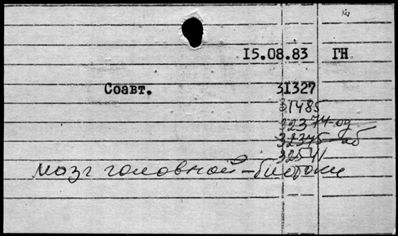 15.08.83 ГН
Соавт. 31327
31485
22374-од
32375-аб
32541
мозг головной-биотоки